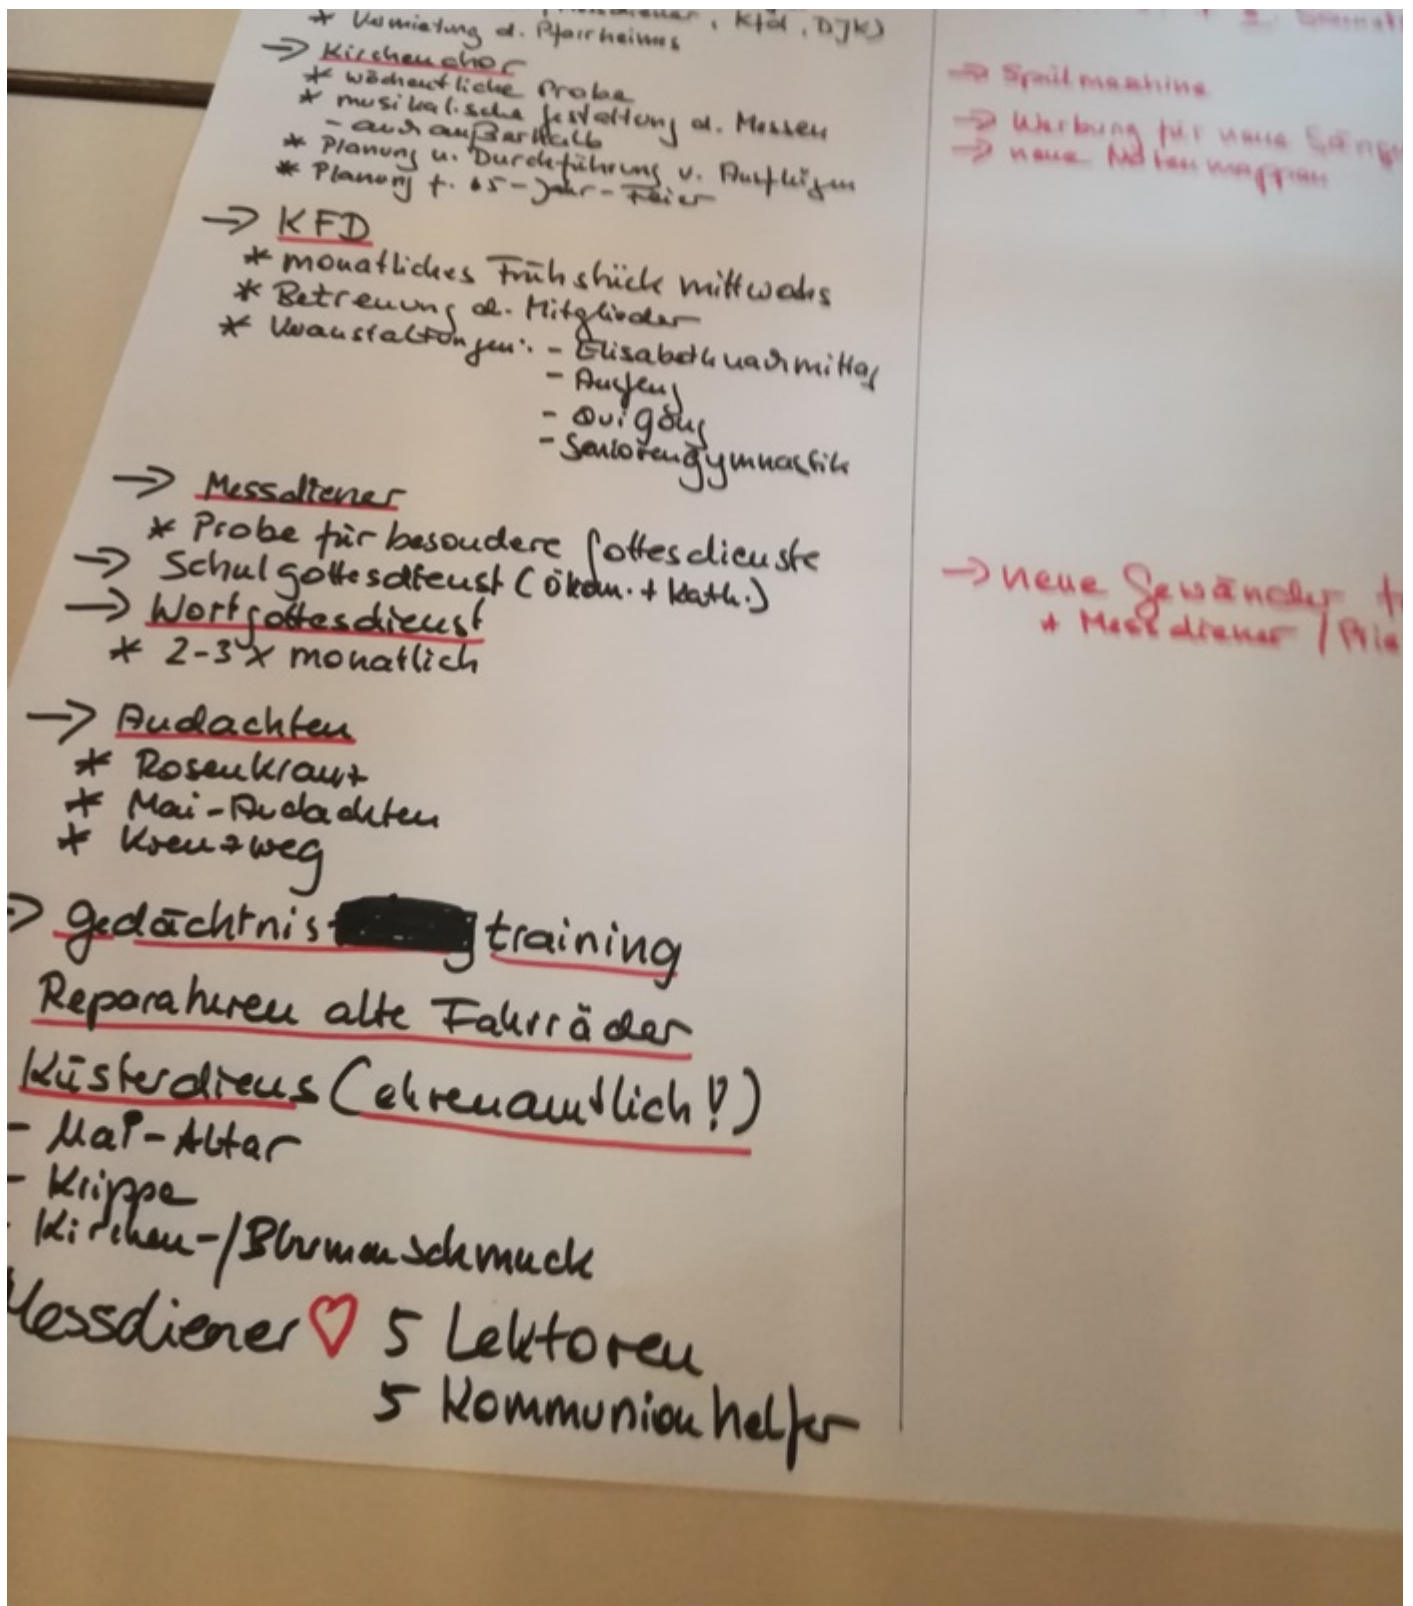 , Kfd, DJK)
* Vermietung d. Pfarrheimes
→ Kirchenchor
* wöchentliche Probe
* musikalische Gestaltung d. Messen
- auch außerhalb
* Planung u. Durchführung v. Ausflügen
* Planung f. 65-Jahr-Feier
→ KFD
* monatliches Frühstück mittwochs
* Betreuung d. Mitglieder
* Veranstaltungen: - Elisabethnachmittag
- Ausflug
- Qui Gong
- Seniorengymnastik
→ Messdiener
* Probe für besondere Gottesdienste
→ Schulgottesdienst (ökum. + kath.)
→ Wortgottesdienst
* 2-3 x monatlich
→ Andachten
* Rosenkranz
* Mai-Andachten
* Kreuzweg
→ Gedächtnis training
Reparaturen alte Fahrräder
Küsterdiens (ehrenamtlich!)
- Mai-Altar
- Krippe
- Kirchen-/Blumenschmuck
Messdiener ♡ 5 Lektoren
5 Kommunionhelfer
→ Spülmaschine
→ Werbung für neue Sänge
→ neue Notenmappen
→ neue Gewänder f
* Messdiener / Prie